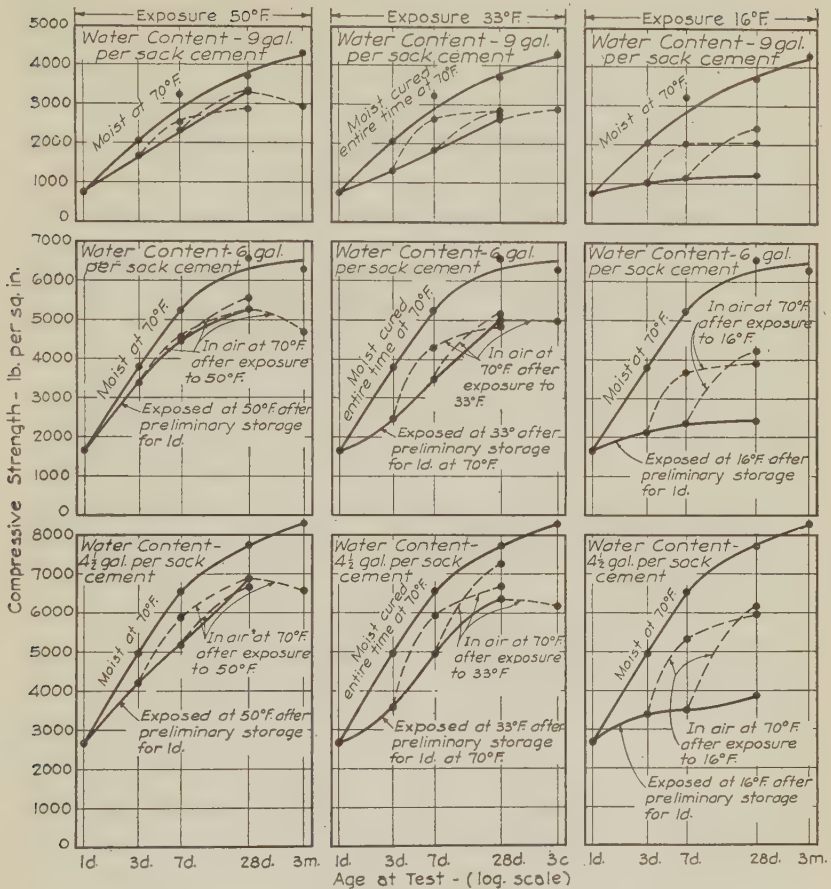 Exposure 50°F.
Exposure 33°F.
Exposure 16°F.
5000
4000
3000
2000
1000
0
Water Content - 9 gal.
per sack cement
Moist at 70°F.
Water Content - 9 gal.
per sack cement
Moist cured
entire time at 70°F.
Water Content - 9 gal.
per sack cement
Moist at 70°F.
7000
6000
5000
4000
3000
2000
1000
0
Water Content - 6 gal.
per sack cement
Moist at 70°F.
In air at 70°F.
after exposure
to 50°F.
Exposed at 50°F. after
preliminary storage
for 1d.
Water Content - 6 gal.
per sack cement
Moist cured
entire time at 70°F.
In air at
70°F. after
exposure to
33°F.
Exposed at 33° after
preliminary storage
for 1d. at 70°F.
Water Content - 6 gal.
per sack cement
In air at 70°F.
after exposure
to 16°F.
Moist at 70°F.
Exposed at 16°F. after
preliminary storage
for 1d.
8000
7000
6000
5000
4000
3000
2000
1000
0
Water Content -
4½ gal. per sack
cement
Moist at 70°F.
In air at 70°F.
after exposure
to 50°F.
Exposed at 50°F. after
preliminary storage
for 1d.
Water Content -
4½ gal. per sack
cement
Moist cured
entire time at 70°F.
In air at 70°F.
after exposure
to 33°F.
Exposed at 33°F. after
preliminary storage
for 1d. at 70°F.
Water Content -
4½ gal. per sack
cement
Moist at 70°F.
In air at 70°F.
after exposure
to 16°F.
Exposed at 16°F. after
preliminary storage
for 1d.
Compressive Strength - lb. per sq. in.
1d. 3d. 7d. 28d. 3m.
1d. 3d. 7d. 28d. 3c
1d. 3d. 7d. 28d. 3m.
Age at Test - (log. scale)